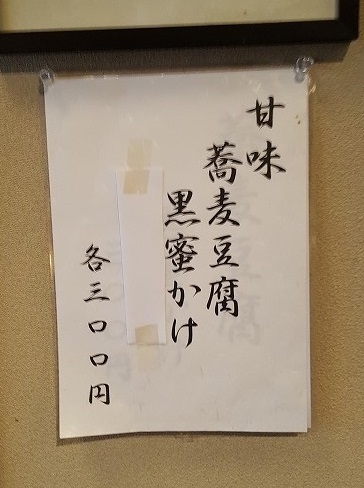 甘味
蕎麦豆腐
黒蜜かけ
各三〇〇円